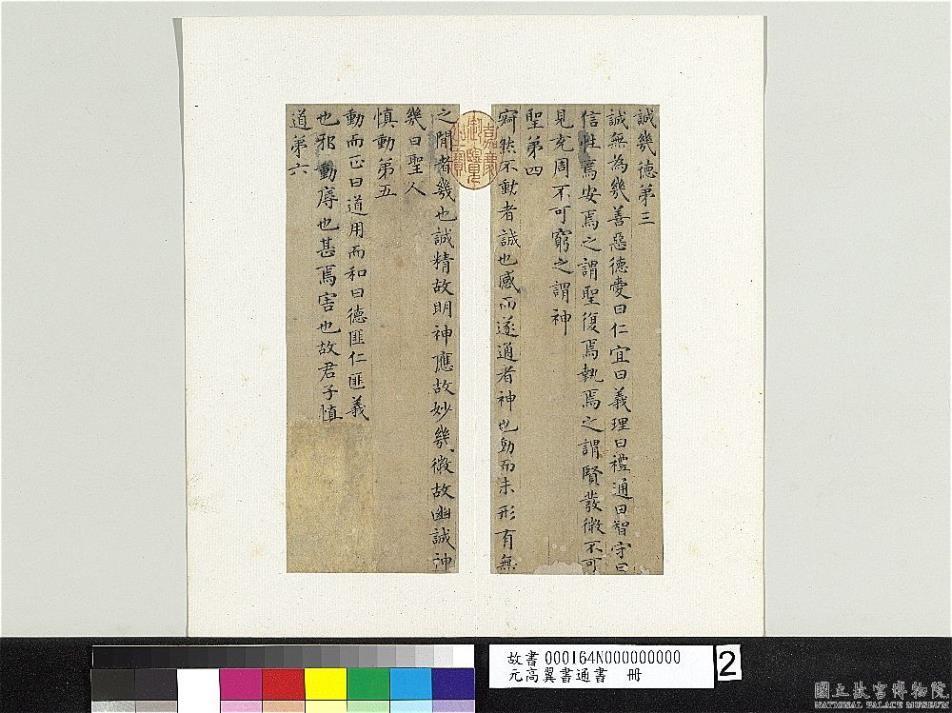 誠幾德第三
誠無為幾善惡德愛曰仁宜曰義理曰禮通曰智守曰
信性焉安焉之謂聖復焉執焉之謂賢發微不可
見充周不可窮之謂神
聖第四
寂然不動者誠也感而遂通者神也動而未形有無
之間者幾也誠精故明神應故妙幾微故幽誠神
幾曰聖人
慎動第五
動而正曰道用而和曰德匪仁匪義
也邪動辱也甚焉害也故君子慎
道第六
嘉慶御覽之寶
故書 000164N000000000
元高翼書通書 冊
2
國立故宮博物院
NATIONAL PALACE MUSEUM